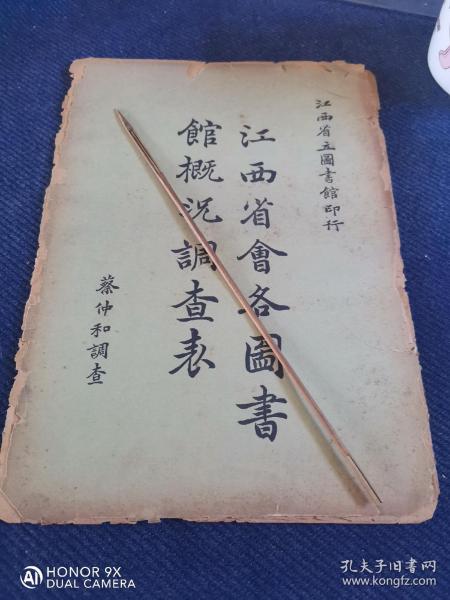 江西省立圖書館印行
江西省會各圖書
館概況調查表
蔡仲和調查
HONOR 9X
DUAL CAMERA
孔夫子旧书网
www.kongfz.com